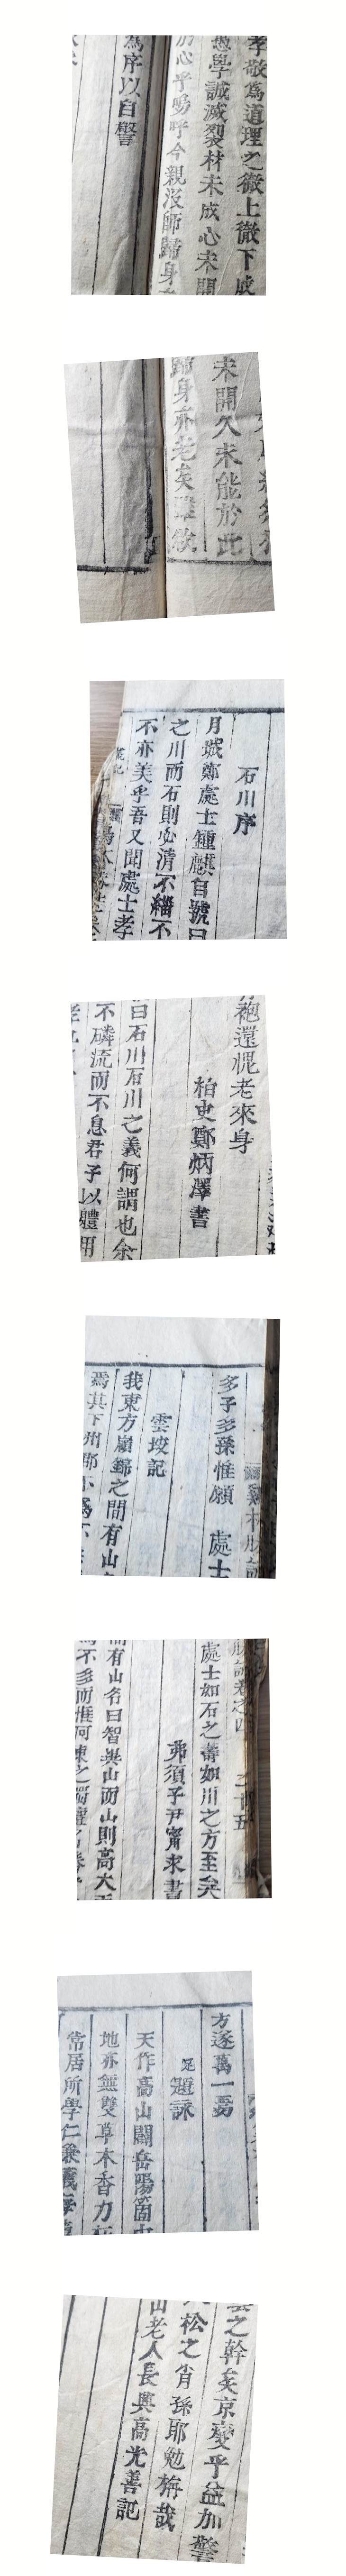 孝敬爲道理之徹上徹下
學誠滅裂材未成心未開
心乎嗚呼今親沒師歸身
爲序以自警
未開久未能於此
歸身亦老矣
石川序
月城鄭處士鍾麒自號曰
之川而石則必清不緇不
不亦美乎吾又聞處士孝
袍還愧老來身
柏史鄭炳澤書
曰石川石川之義何謂也余
不磷流而不息君子以體用
多子多孫惟願 處士
雲坡記
我東方嶺錦之間有山
爲其下州郡不爲不
卷之四
處士如石之壽如川之方至矣
弗須子尹甯求書
有山名曰智異山而山則高大
不多而惟河東之
方遂萬一焉
足題詠
天作高山闢岳陽箇中
地亦無雙草木香力
常居所學仁兼義
之幹矣京變乎益加警
松之肖孫耶勉旃哉
山老人長興高光善記